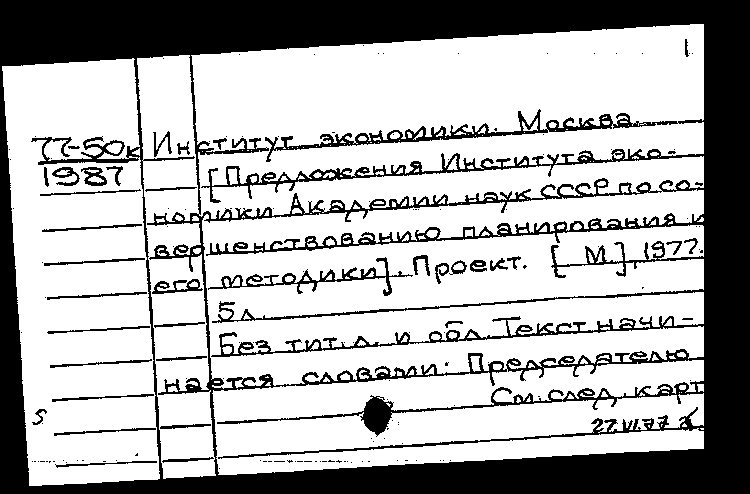 1
77-50к Институт экономики. Москва.
1987 [Предложения Института эко-
номики Академии наук СССР по со-
вершенствованию планирования и
его методики]. Проект. [М.], 1977.
5л.
Без тит. л. и обл. Текст начи-
нается словами: Председателю
См. след. карт
S
27.VI.77